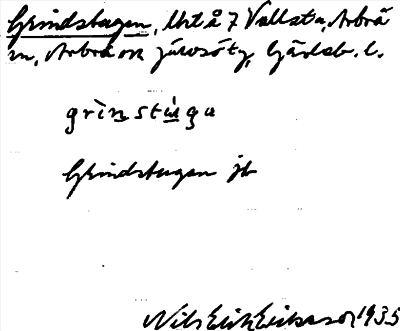 Grindstugen, Urt å 7 Vallsta, Arbrå
sn, Arbrå och Järvsö tg, Gävleb. l.
grinstuga
Grindstugen jb
Nils Erik Eriksson 1935